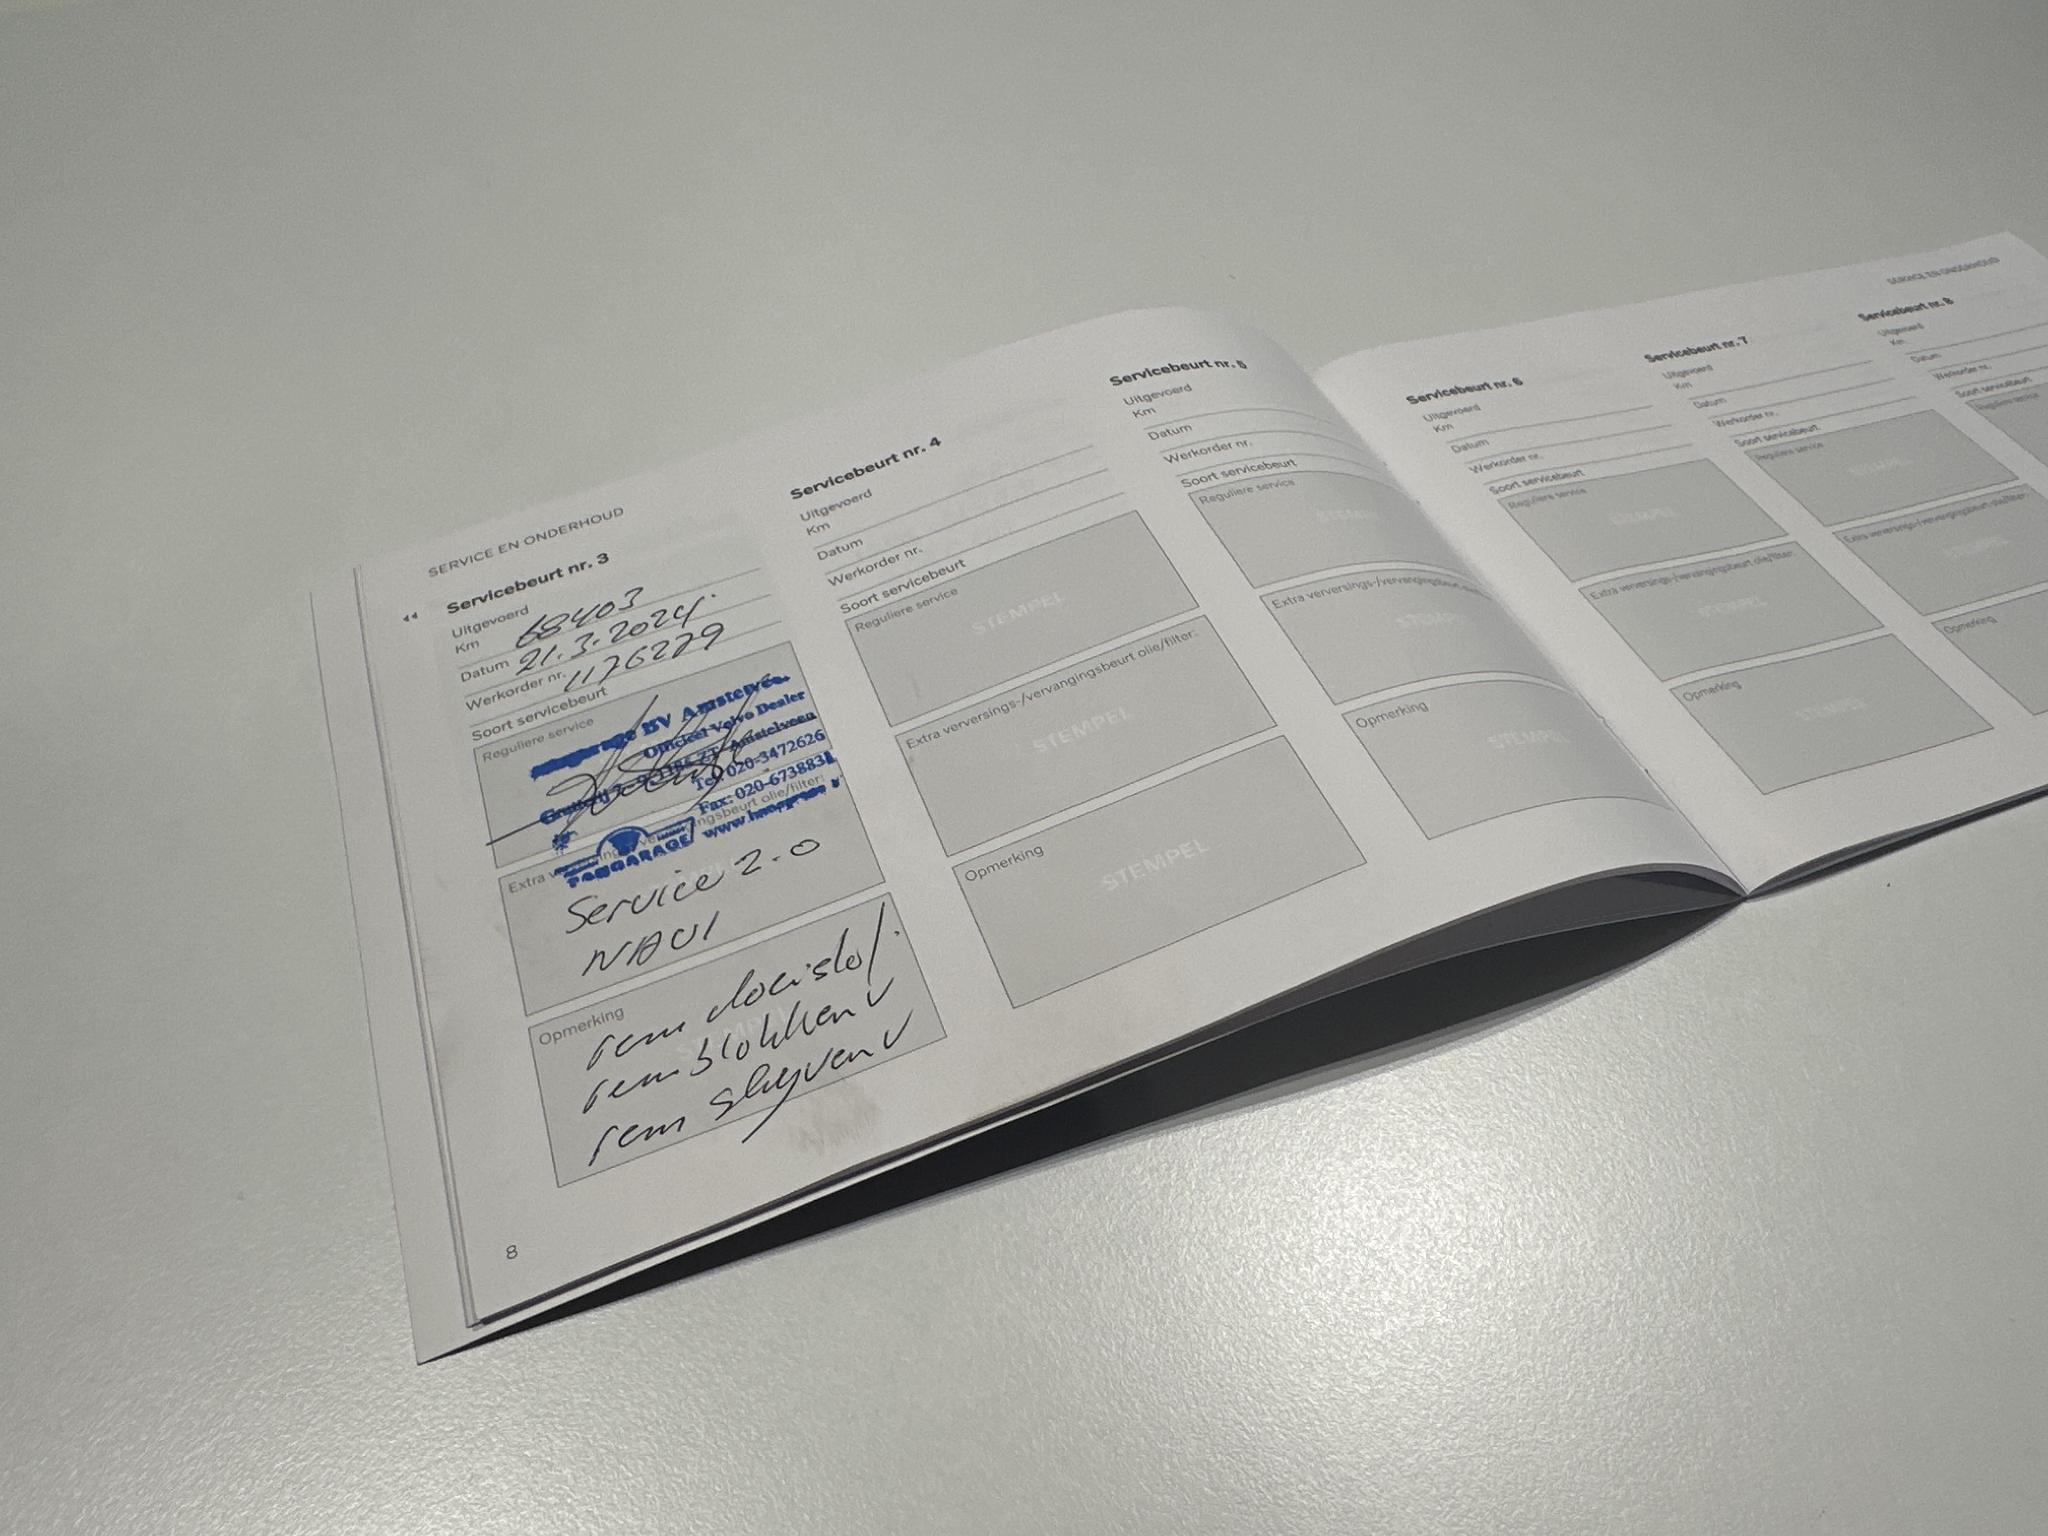 SERVICE EN ONDERHOUD
Servicebeurt nr. 3
Uitgevoerd
Km 68403
Datum 21.3.2024.
Werkorder nr. 1176279
Soort servicebeurt
Reguliere service
BV Amstelveen
Officieel Volvo Dealer
1185 ZT Amstelveen
Tel: 020-3472626
Fax: 020-6738831
PANGARAGE
Extra olie/filter:
Service 2.0
NAVI
Opmerking
rem vloeistof.
rem blokken v
rem schyven v
8
Servicebeurt nr. 4
Uitgevoerd
Km
Datum
Werkorder nr.
Soort servicebeurt
Reguliere service
STEMPEL
Extra verversings-/vervangingsbeurt olie/filter:
STEMPEL
Opmerking
STEMPEL
Servicebeurt nr. 5
Uitgevoerd
Km
Datum
Werkorder nr.
Soort servicebeurt
Reguliere service
STEMPEL
Extra verversings-/vervangingsbeurt
STEMPEL
Opmerking
STEMPEL
SERVICE EN ONDERHOUD
Servicebeurt nr. 6
Uitgevoerd
Km
Datum
Werkorder nr.
Soort servicebeurt
Reguliere service
STEMPEL
Extra verversings-/vervangingsbeurt olie/filter:
STEMPEL
Opmerking
STEMPEL
Servicebeurt nr. 7
Uitgevoerd
Km
Datum
Werkorder nr.
Soort servicebeurt
Reguliere service
STEMPEL
Extra verversings-/vervangingsbeurt olie/filter:
STEMPEL
Opmerking
Servicebeurt nr. 8
Uitgevoerd
Km
Datum
Werkorder nr.
Soort servicebeurt
Reguliere service